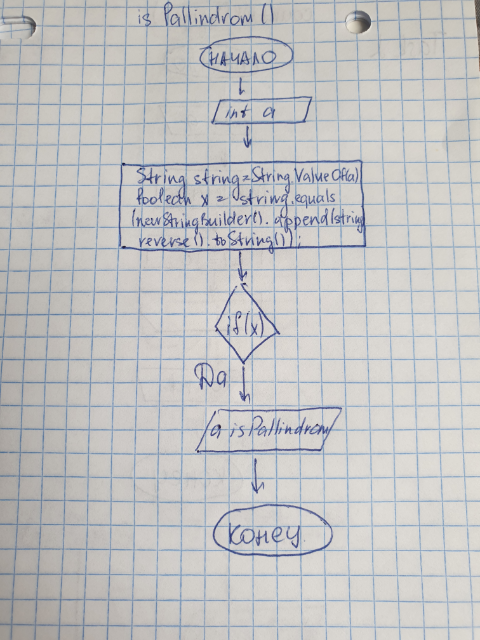 is Pallindrom()
НАЧАЛО
int a
String string=String ValueOf(a)
boolean x = string.equals
(new StringBuilder().append(string
reverse().toString());
if(x)
Да
a is Pallindrom
конец